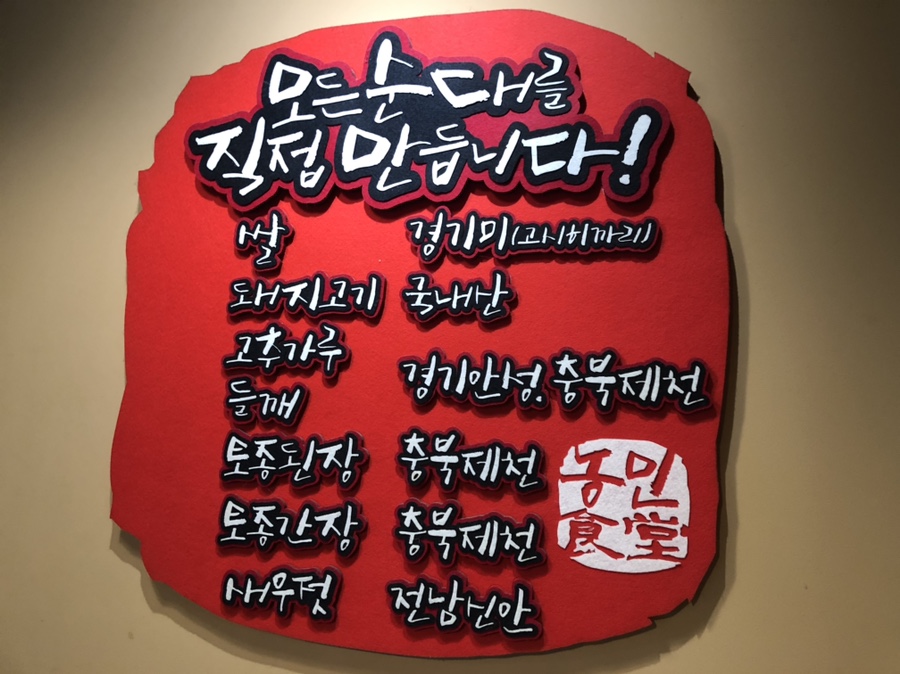 모든순대를
직접 만듭니다!
쌀 경기미(고시히까리)
돼지고기 국내산
고추가루
들깨
경기안성. 충북제천
토종된장 충북제천
토종간장 충북제천
새우젓 전남신안
농민
食堂